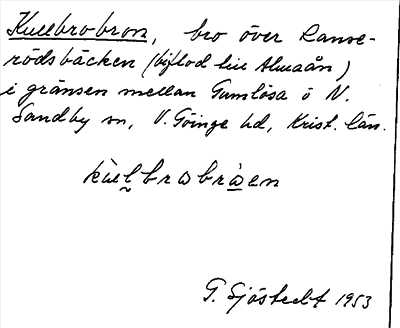 Kullbrobron, bro över Ranse-
rödsbäcken (biflod till Almaån)
i gränsen mellan Gumlösa o N.
Sandby sn, V. Göinge hd, Krist. län.
G. Sjöstedt 1953